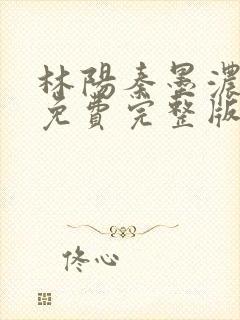 林陽秦墨濃
免費完整版
佟心